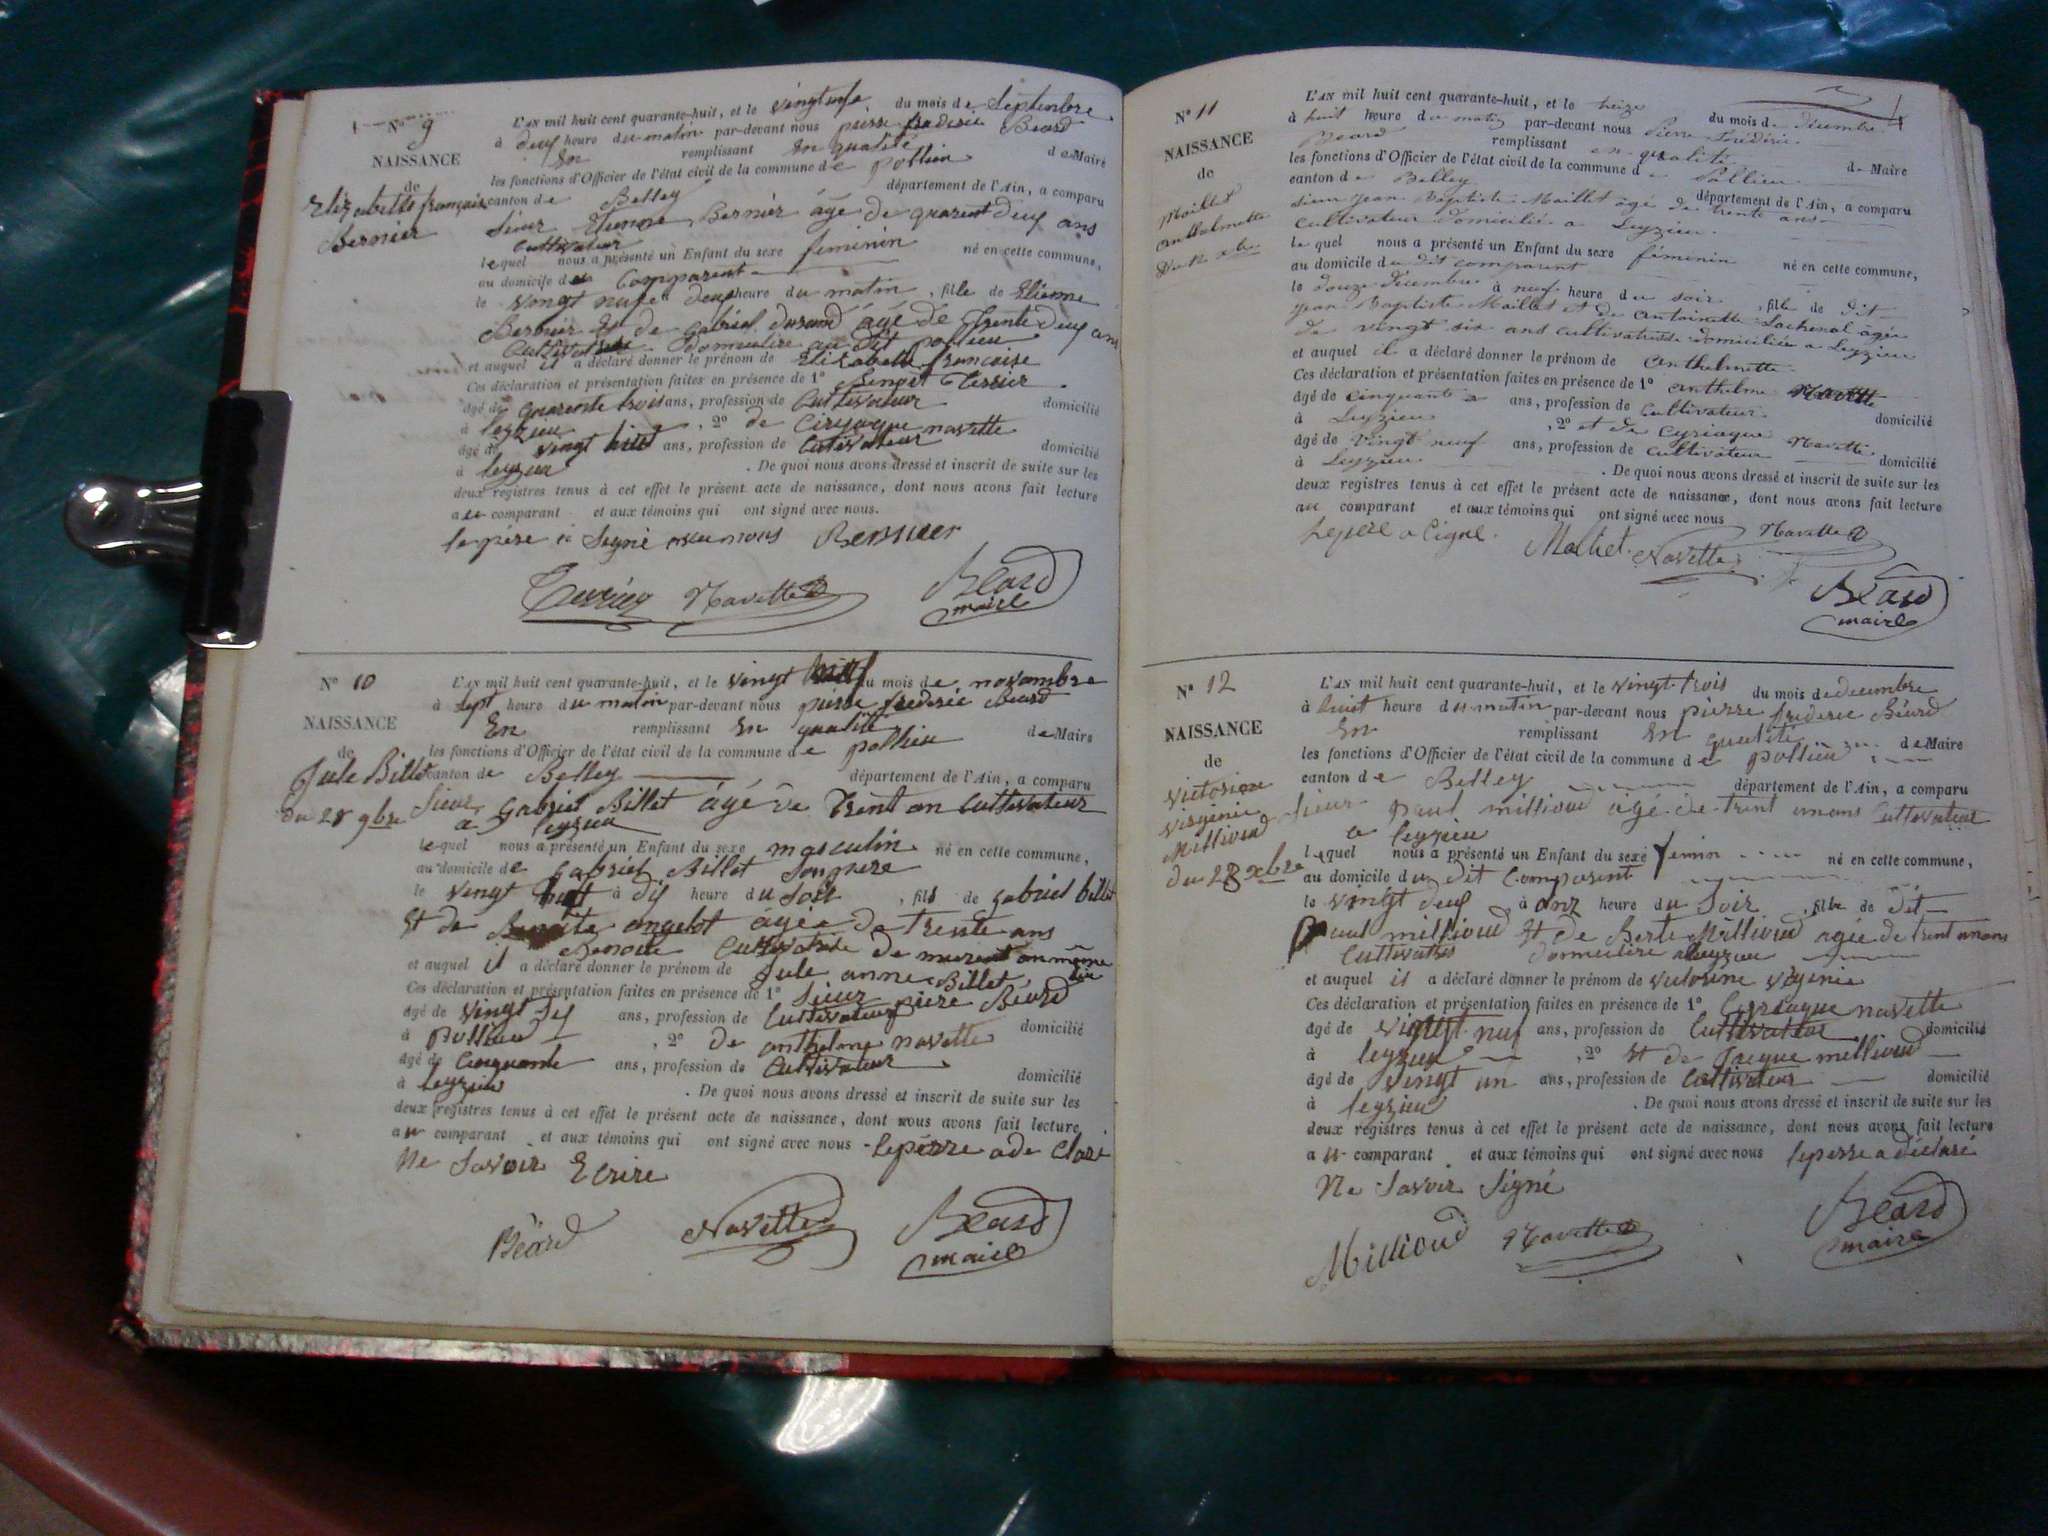 Nº 9
NAISSANCE
de
Elizabette française
Bernier
L'AN mil huit cent quarante-huit, et le vingt neuf du mois de Septembre
à deux heure du matin par-devant nous pierre frederic Béard
En remplissant En qualité de Maire
les fonctions d'Officier de l'état civil de la commune de pollieu
canton de Belley département de l'Ain, a comparu
Sieur Etienne Bernier âgé de quarent deux ans
Cultivateur
lequel nous a présenté un Enfant du sexe feminin né en cette commune,
au domicile du Comparent
le vingt neuf à deux heure du matin, fille de Etienne
Bernier Et de gabriel durand âgé de Trente deux ans
domiciliée au dit pollieu
et auquel il a déclaré donner le prénom de Elizabette francaise
Ces déclaration et présentation faites en présence de 1º Benoit Terrier
âgé de quarente trois ans, profession de Cultivateur domicilié
à leyzieu, 2º de Ciryaque navette
âgé de vingt huit ans, profession de Cutivateur domicilié
à leyzieu. De quoi nous avons dressé et inscrit de suite sur les
deux registres tenus à cet effet le présent acte de naissance, dont nous avons fait lecture
au comparant et aux témoins qui ont signé avec nous.
le père a Signé avec nous
Navette Béard
maire
Nº 10
NAISSANCE
de
Jule Billet
du 28 9bre
L'AN mil huit cent quarante-huit, et le vingt du mois de novembre
à sept heure du matin par-devant nous pierre frederic Béard
En remplissant En qualité de Maire
les fonctions d'Officier de l'état civil de la commune de pollieu
canton de Belley département de l'Ain, a comparu
Sieur Gabriel Billet âgé de Trent an Cultivateur
a leyzieu
lequel nous a présenté un Enfant du sexe masculin né en cette commune,
au domicile de Gabriel Billet Son pere
le vingt huit à dix heure du Soir, fils de gabriel billet
Et de angelot âgée de trente ans
Benoite
et auquel il a déclaré donner le prénom de Jule anne Billet
Ces déclaration et présentation faites en présence de 1º Sieur piere Béard
âgé de vingt Six ans, profession de Cultivateur
à Pollieu, 2º De anthelme navette domicilié
âgé de Cinquante ans, profession de Cultivateur
à leyzieu domicilié
. De quoi nous avons dressé et inscrit de suite sur les
deux registres tenus à cet effet le présent acte de naissance, dont nous avons fait lecture
au comparant et aux témoins qui ont signé avec nous le perre a de Claré
Ne Savoir Ecrire
Béard Navette Béard
maire
Nº 11
NAISSANCE
de
Maillet
anthelmette
L'AN mil huit cent quarante-huit, et le treize du mois de décembre
à huit heure du matin par-devant nous Pierre Frédéric
Béard remplissant en qualité de Maire
les fonctions d'Officier de l'état civil de la commune de Pollieu
canton de Belley département de l'Ain, a comparu
sieur Jean Baptiste Maillet âgé de trente ans
Cultivateur domicilié a Leyzieu
lequel nous a présenté un Enfant du sexe féminin né en cette commune,
au domicile du dit comparent
le douze Décembre à neuf heure du soir, fille de dit
Jean Baptiste Maillet et de antoinette Lachenal âgée
de vingt six ans cultivatrice domiciliée a Leyzieu
et auquel il a déclaré donner le prénom de anthelmette
Ces déclaration et présentation faites en présence de 1º anthelme Navette
âgé de cinquante ans, profession de cultivateur domicilié
à Leyzieu, 2º et de Cyriaque Navette
âgé de Vingt neuf ans, profession de cultivateur domicilié
à Leyzieu. De quoi nous avons dressé et inscrit de suite sur les
deux registres tenus à cet effet le présent acte de naissance, dont nous avons fait lecture
au comparant et aux témoins qui ont signé avec nous
Le pere a Signé. Navette Navette
Béard
maire
Nº 12
NAISSANCE
de
Victorine
Virginie
Millioud
du 23 xbre
L'AN mil huit cent quarante-huit, et le vingt-trois du mois de decembre
à huit heure du matin par-devant nous pierre frederic Béard
En remplissant En qualité de Maire
les fonctions d'Officier de l'état civil de la commune de pollieu
canton de Belley département de l'Ain, a comparu
Sieur paul millioud âgé de trent unans Cultivateur
a leyzieu
lequel nous a présenté un Enfant du sexe femin né en cette commune,
au domicile du dit Comparent
le vingt deux à onz heure du Soir, fille de dit
Paul millioud Et de Berte Millioud agée de trent unans
et auquel il a déclaré donner le prénom de victorine viginie
Ces déclaration et présentation faites en présence de 1º Cyriaque navette
âgé de vingt neuf ans, profession de Cultivateur domicilié
à leyzieu, 2º Et de Jacque millioud
âgé de Vingt un ans, profession de Cultivateur domicilié
à leyzieu. De quoi nous avons dressé et inscrit de suite sur les
deux registres tenus à cet effet le présent acte de naissance, dont nous avons fait lecture
au comparant et aux témoins qui ont signé avec nous le perre a déclaré
Ne Savoir Signé
Millioud Navette Béard
maire